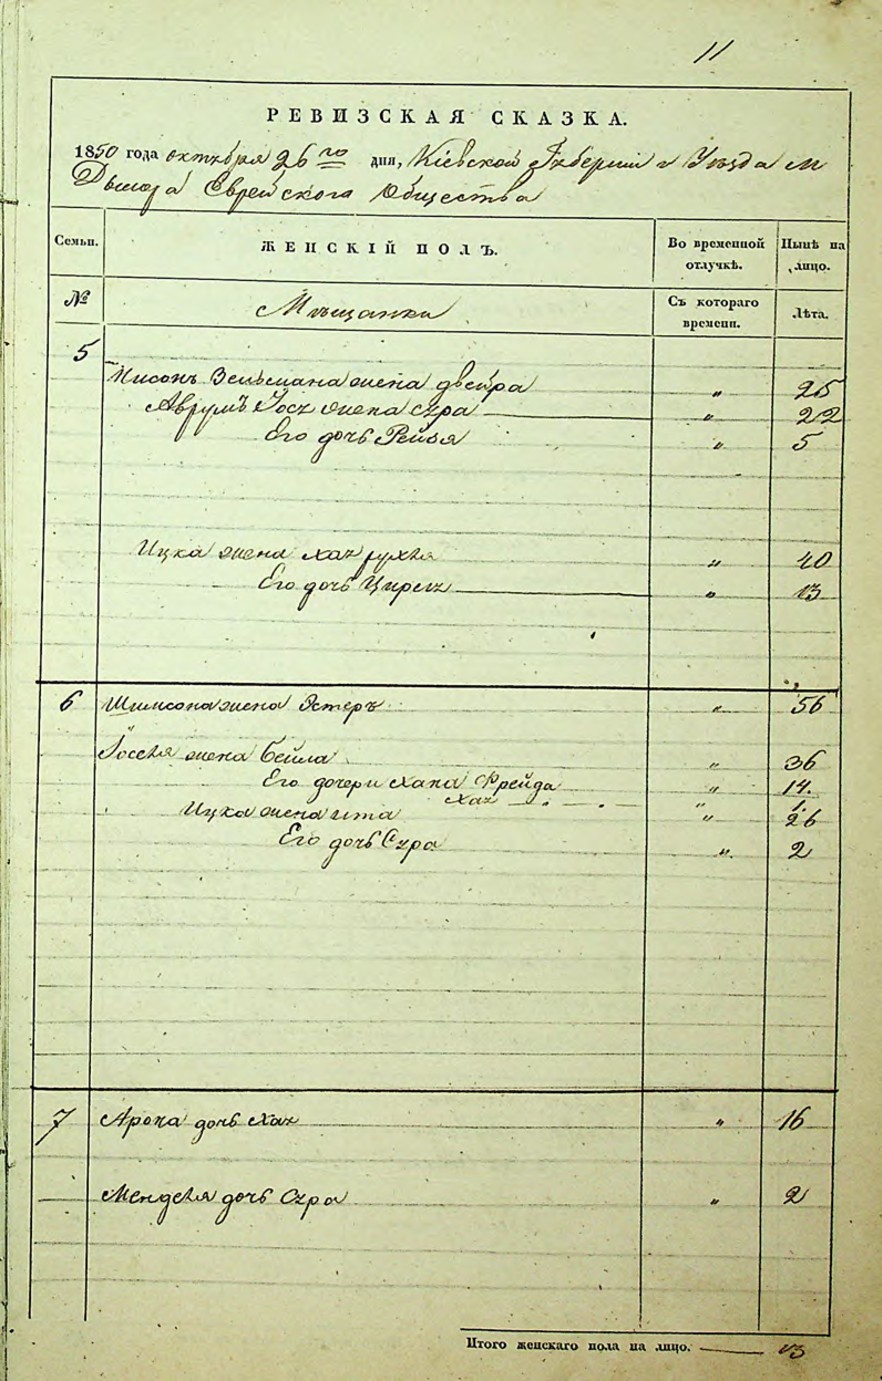 11
РЕВИЗСКАЯ СКАЗКА.
1850 года октября 26го дня, Кіевской Губерніи и Уѣзда М
Дымера Еврейскаго Общества
Семьи. ЖЕНСКІЙ ПОЛЪ. Во временной отлучкѣ. Нынѣ на лицо.
№ Мѣщанки Съ котораго времени. Лѣта.
5
Нисонъ Зельмана жена Двейра " 25
Аврумъ Iось жена Сура " 22
Его дочь Рейзя " 5
Ицка жена Хая рухля " 40
Его дочь Ципея " 13
6 Шимсона жена Эстеръ " 56
Іоселя жена Бейла " 36
Его дочери Хана Фрейда " 14.
Хая " 1.
Ицка жена ита " 26
Его дочь Сура " 2
7 Арона дочь Хая " 16
Менделя дочь Сура " 2
Итого женскаго пола на лицо. 13